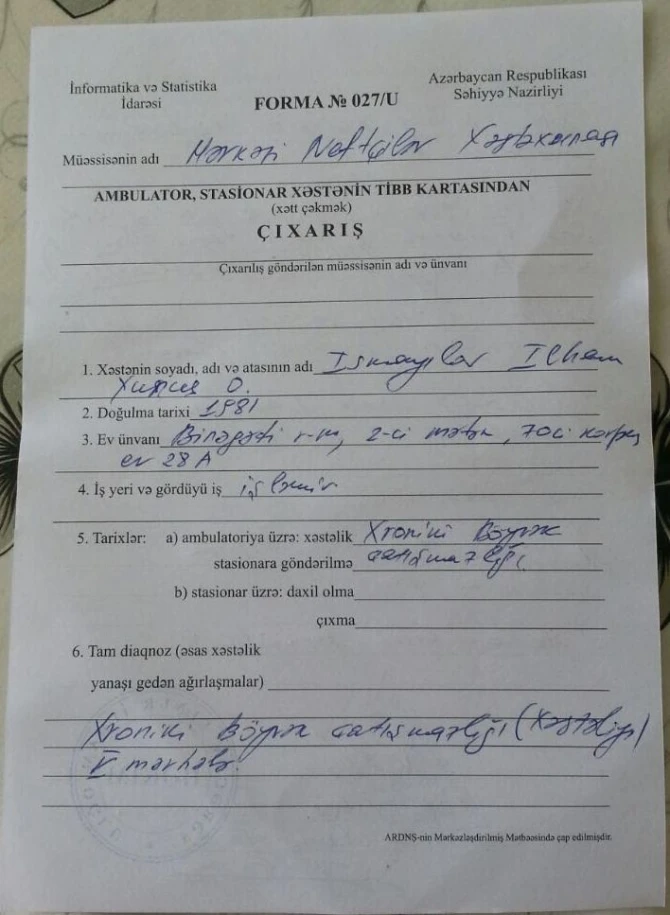 İnformatika və Statistika İdarəsi
FORMA № 027/U
Azərbaycan Respublikası Səhiyyə Nazirliyi
Müəssisənin adı Mərkəzi Neftçilər Xəstəxanası
AMBULATOR, STASİONAR XƏSTƏNİN TİBB KARTASINDAN
(xətt çəkmək)
ÇIXARIŞ
Çıxarılış göndərilən müəssisənin adı və ünvanı
1. Xəstənin soyadı, adı və atasının adı İsmayılov İlham
Yunus O.
2. Doğulma tarixi 1981
3. Ev ünvanı Binəqədi r-nu, 2-ci mətən, 70ci korpus
ev 28 A
4. İş yeri və gördüyü iş işləmir
5. Tarixlər: a) ambulatoriya üzrə: xəstəlik Xroniki Böyrək
stasionara göndərilmə çatışmazlığı
b) stasionar üzrə: daxil olma
çıxma
6. Tam diaqnoz (əsas xəstəlik
yanaşı gedən ağırlaşmalar)
Xroniki Böyrək çatışmazlığı (xəstəliyi)
V mərhələ.
ARDNŞ-nin Mərkəzləşdirilmiş Mətbəəsində çap edilmişdir.